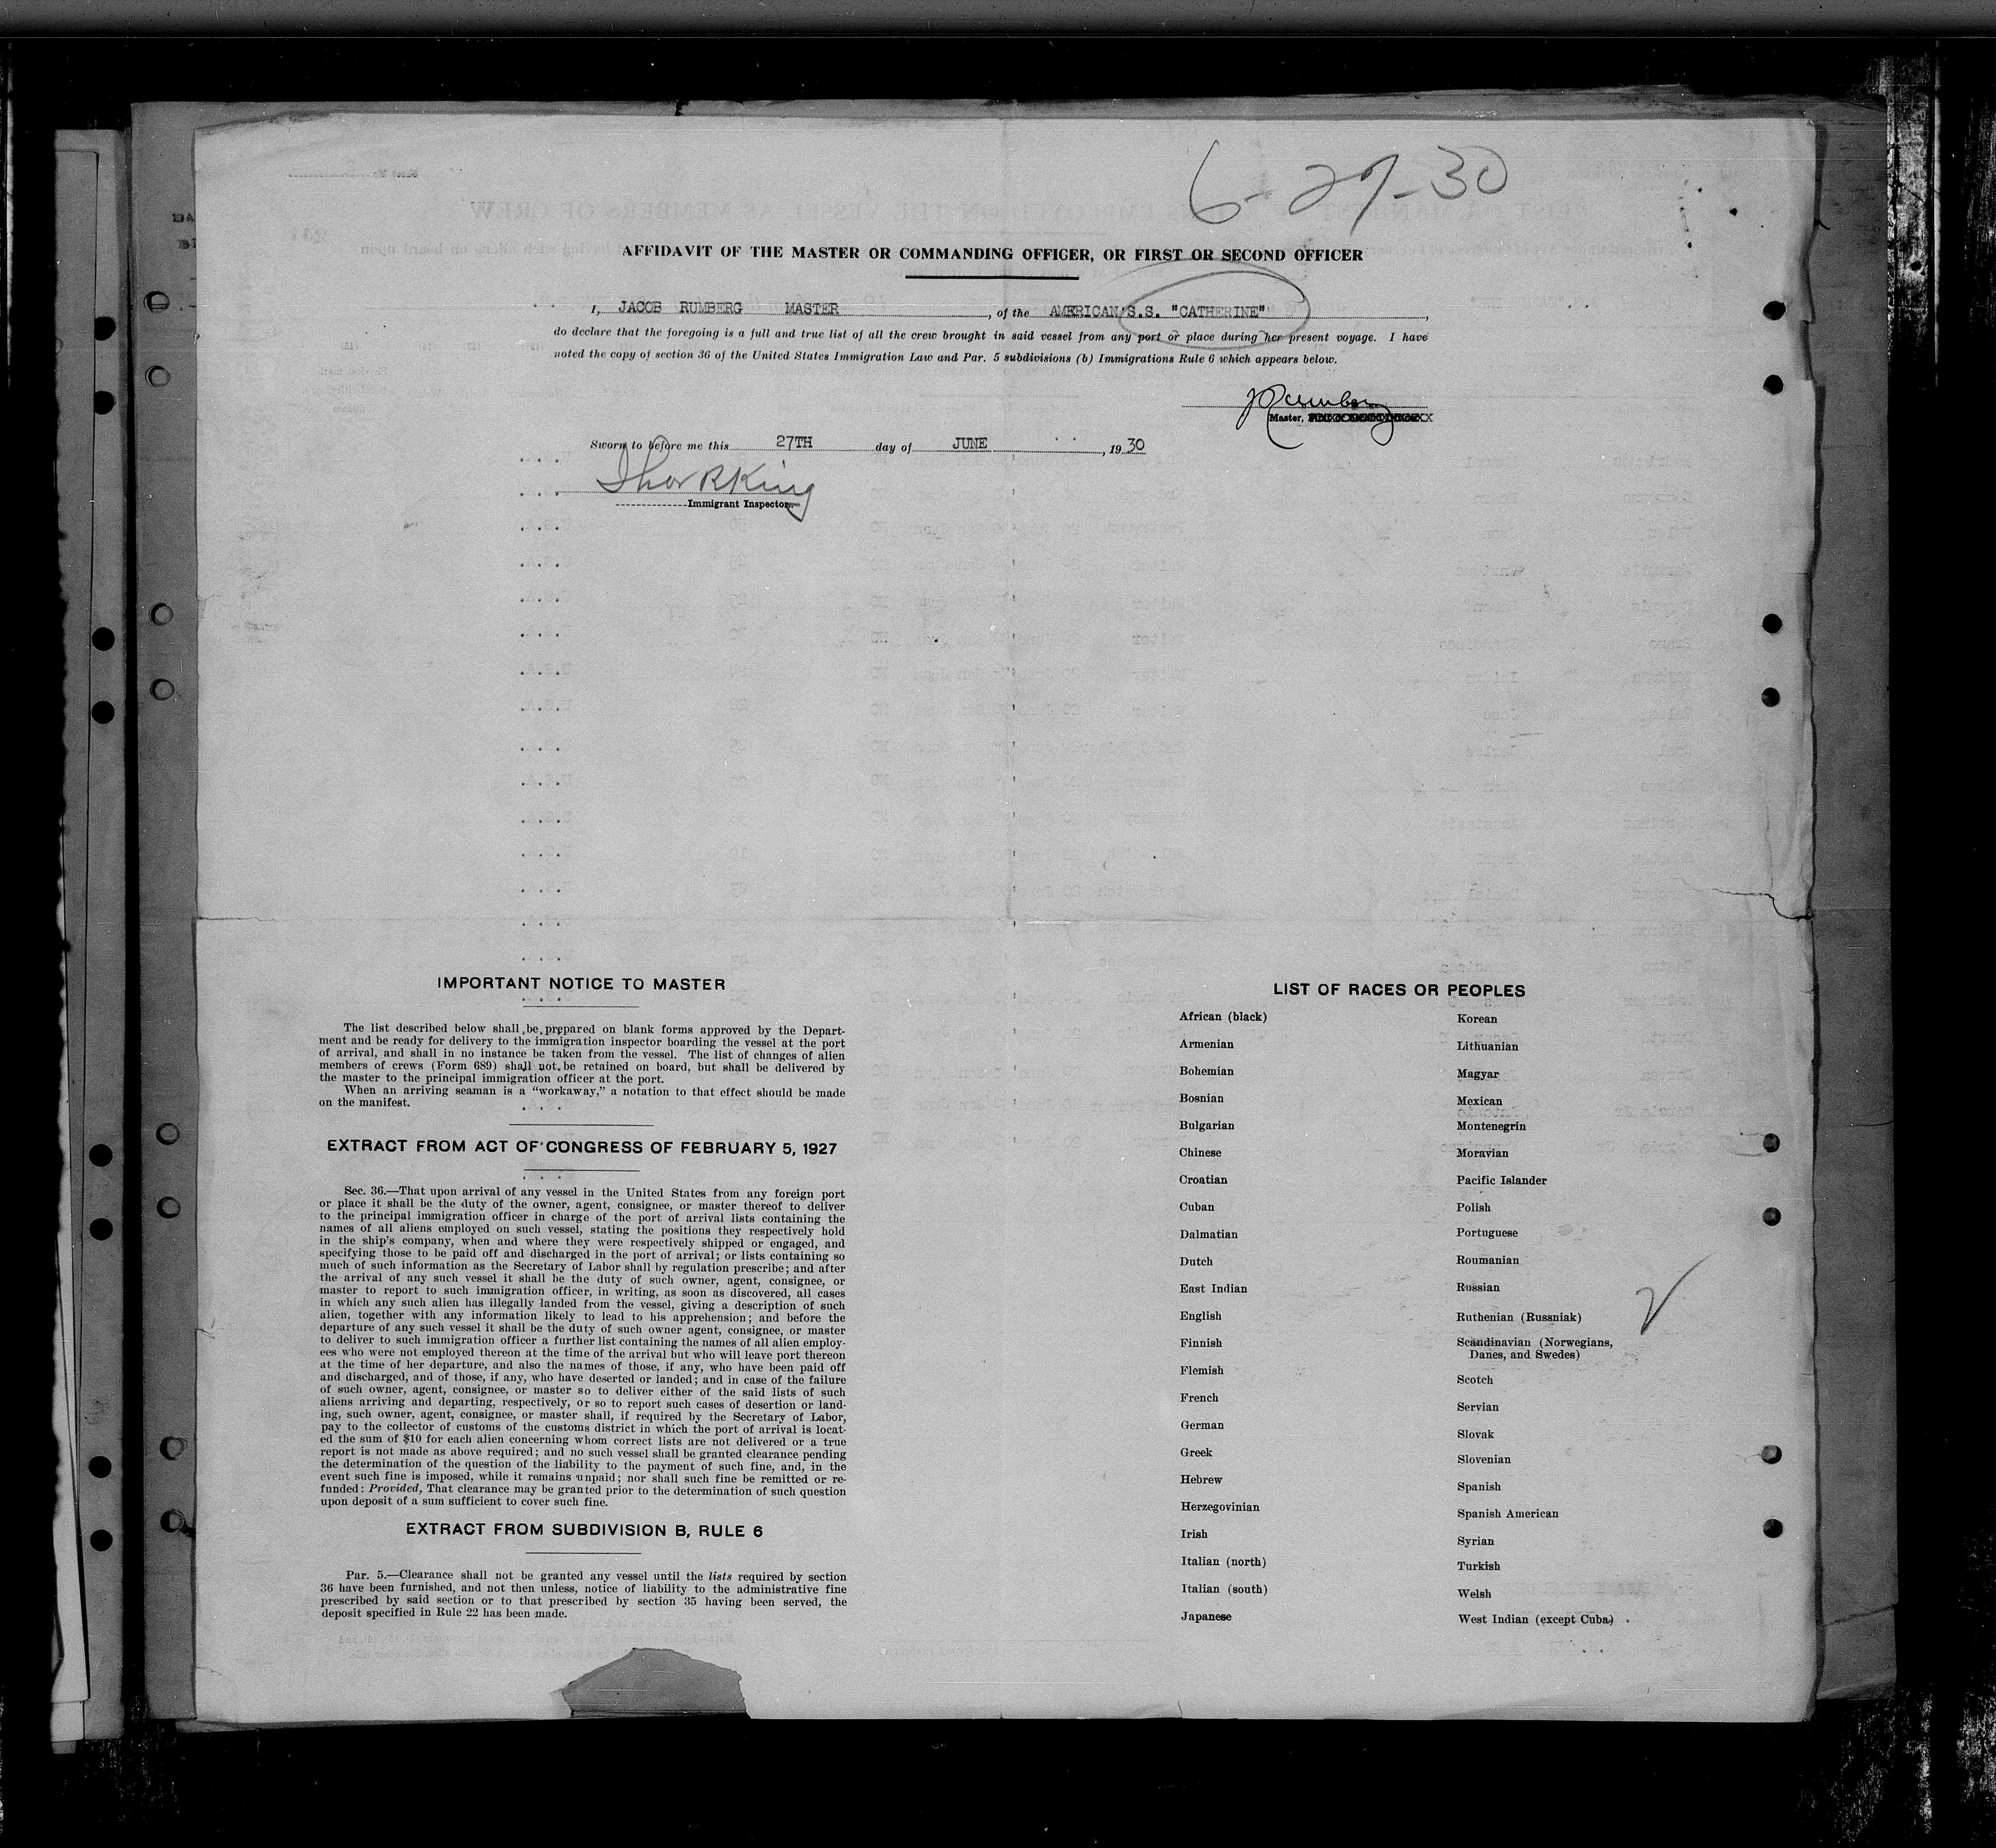 6-27-30
AFFIDAVIT OF THE MASTER OR COMMANDING OFFICER, OR FIRST OR SECOND OFFICER
I, JACOB RUMBERG MASTER, of the AMERICAN S.S. "CATHERINE",
do declare that the foregoing is a full and true list of all the crew brought in said vessel from any port or place during her present voyage. I have
noted the copy of section 36 of the United States Immigration Law and Par. 5 subdivisions (b) Immigrations Rule 6 which appears below.
J Rumberg
Master,
Sworn to before me this 27TH day of JUNE, 1930
Immigrant Inspector.
IMPORTANT NOTICE TO MASTER
The list described below shall be prepared on blank forms approved by the Depart-
ment and be ready for delivery to the immigration inspector boarding the vessel at the port
of arrival, and shall in no instance be taken from the vessel. The list of changes of alien
members of crews (Form 689) shall not be retained on board, but shall be delivered by
the master to the principal immigration officer at the port.
When an arriving seaman is a "workaway," a notation to that effect should be made
on the manifest.
EXTRACT FROM ACT OF CONGRESS OF FEBRUARY 5, 1927
Sec. 36.—That upon arrival of any vessel in the United States from any foreign port
or place it shall be the duty of the owner, agent, consignee, or master thereof to deliver
to the principal immigration officer in charge of the port of arrival lists containing the
names of all aliens employed on such vessel, stating the positions they respectively hold
in the ship's company, when and where they were respectively shipped or engaged, and
specifying those to be paid off and discharged in the port of arrival; or lists containing so
much of such information as the Secretary of Labor shall by regulation prescribe; and after
the arrival of any such vessel it shall be the duty of such owner, agent, consignee, or
master to report to such immigration officer, in writing, as soon as discovered, all cases
in which any such alien has illegally landed from the vessel, giving a description of such
alien, together with any information likely to lead to his apprehension; and before the
departure of any such vessel it shall be the duty of such owner agent, consignee, or master
to deliver to such immigration officer a further list containing the names of all alien employ-
ees who were not employed thereon at the time of the arrival but who will leave port thereon
at the time of her departure, and also the names of those, if any, who have been paid off
and discharged, and of those, if any, who have deserted or landed; and in case of the failure
of such owner, agent, consignee, or master so to deliver either of the said lists of such
aliens arriving and departing, respectively, or so to report such cases of desertion or land-
ing, such owner, agent, consignee, or master shall, if required by the Secretary of Labor,
pay to the collector of customs of the customs district in which the port of arrival is locat-
ed the sum of $10 for each alien concerning whom correct lists are not delivered or a true
report is not made as above required; and no such vessel shall be granted clearance pending
the determination of the question of the liability to the payment of such fine, and, in the
event such fine is imposed, while it remains unpaid; nor shall such fine be remitted or re-
funded: Provided, That clearance may be granted prior to the determination of such question
upon deposit of a sum sufficient to cover such fine.
EXTRACT FROM SUBDIVISION B, RULE 6
Par. 5.—Clearance shall not be granted any vessel until the lists required by section
36 have been furnished, and not then unless, notice of liability to the administrative fine
prescribed by said section or to that prescribed by section 35 having been served, the
deposit specified in Rule 22 has been made.
LIST OF RACES OR PEOPLES
African (black)
Armenian
Bohemian
Bosnian
Bulgarian
Chinese
Croatian
Cuban
Dalmatian
Dutch
East Indian
English
Finnish
Flemish
French
German
Greek
Hebrew
Herzegovinian
Irish
Italian (north)
Italian (south)
Japanese
Korean
Lithuanian
Magyar
Mexican
Montenegrin
Moravian
Pacific Islander
Polish
Portuguese
Roumanian
Russian
Ruthenian (Russniak)
Scandinavian (Norwegians,
Danes, and Swedes)
Scotch
Servian
Slovak
Slovenian
Spanish
Spanish American
Syrian
Turkish
Welsh
West Indian (except Cuba)